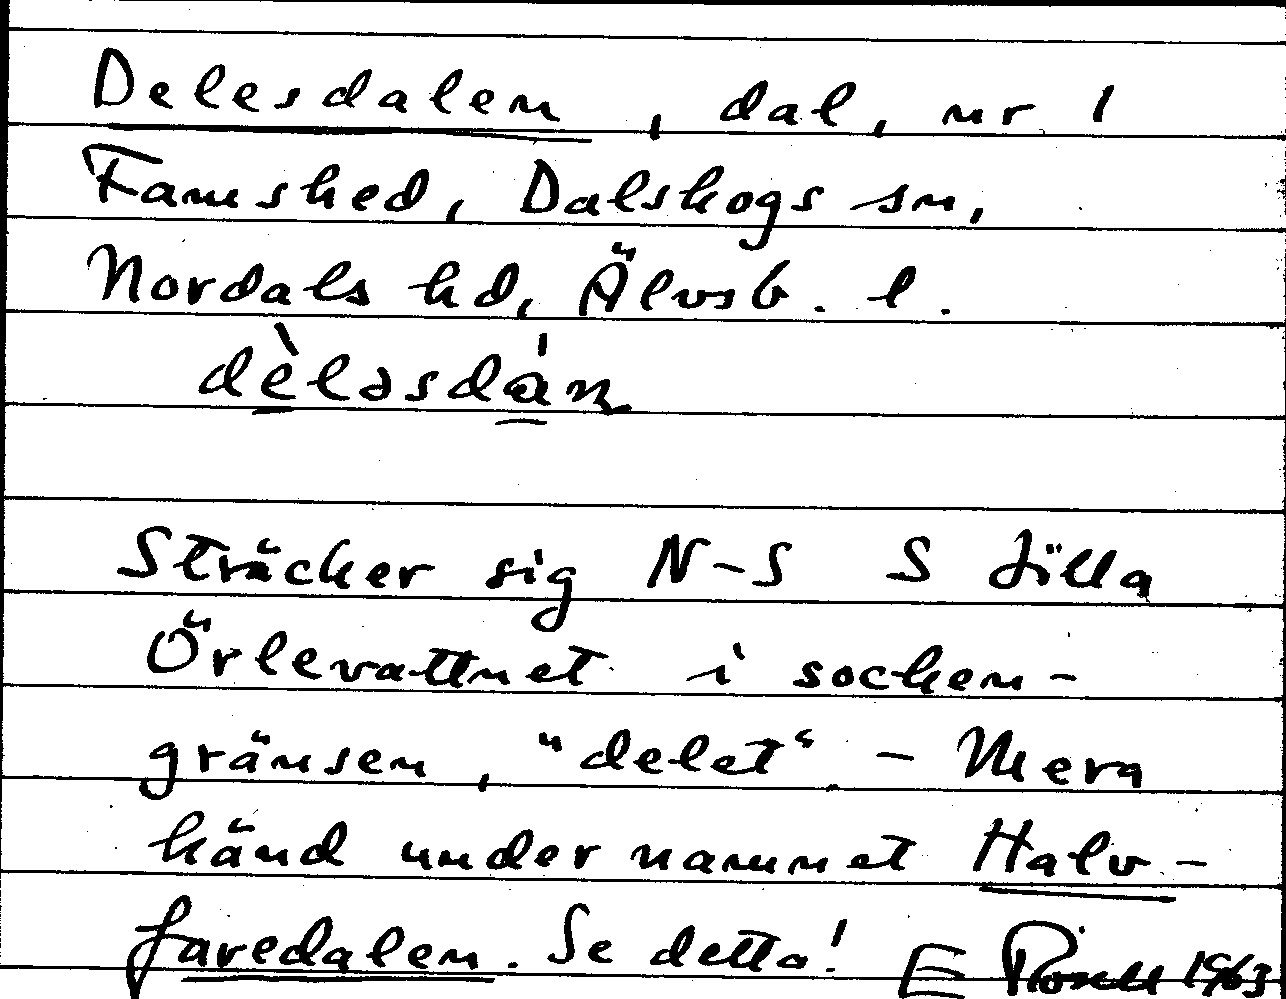 Delesdalen, dal, nr 1
Famshed, Dalskogs sn,
Nordals hd, Älvsb. l.
dèləsdán
Sträcker sig N-S S Lilla
Örlevattnet i socken-
gränsen, "delet" - Mera
känd under namnet Halv-
faredalen. Se detta! E 1963